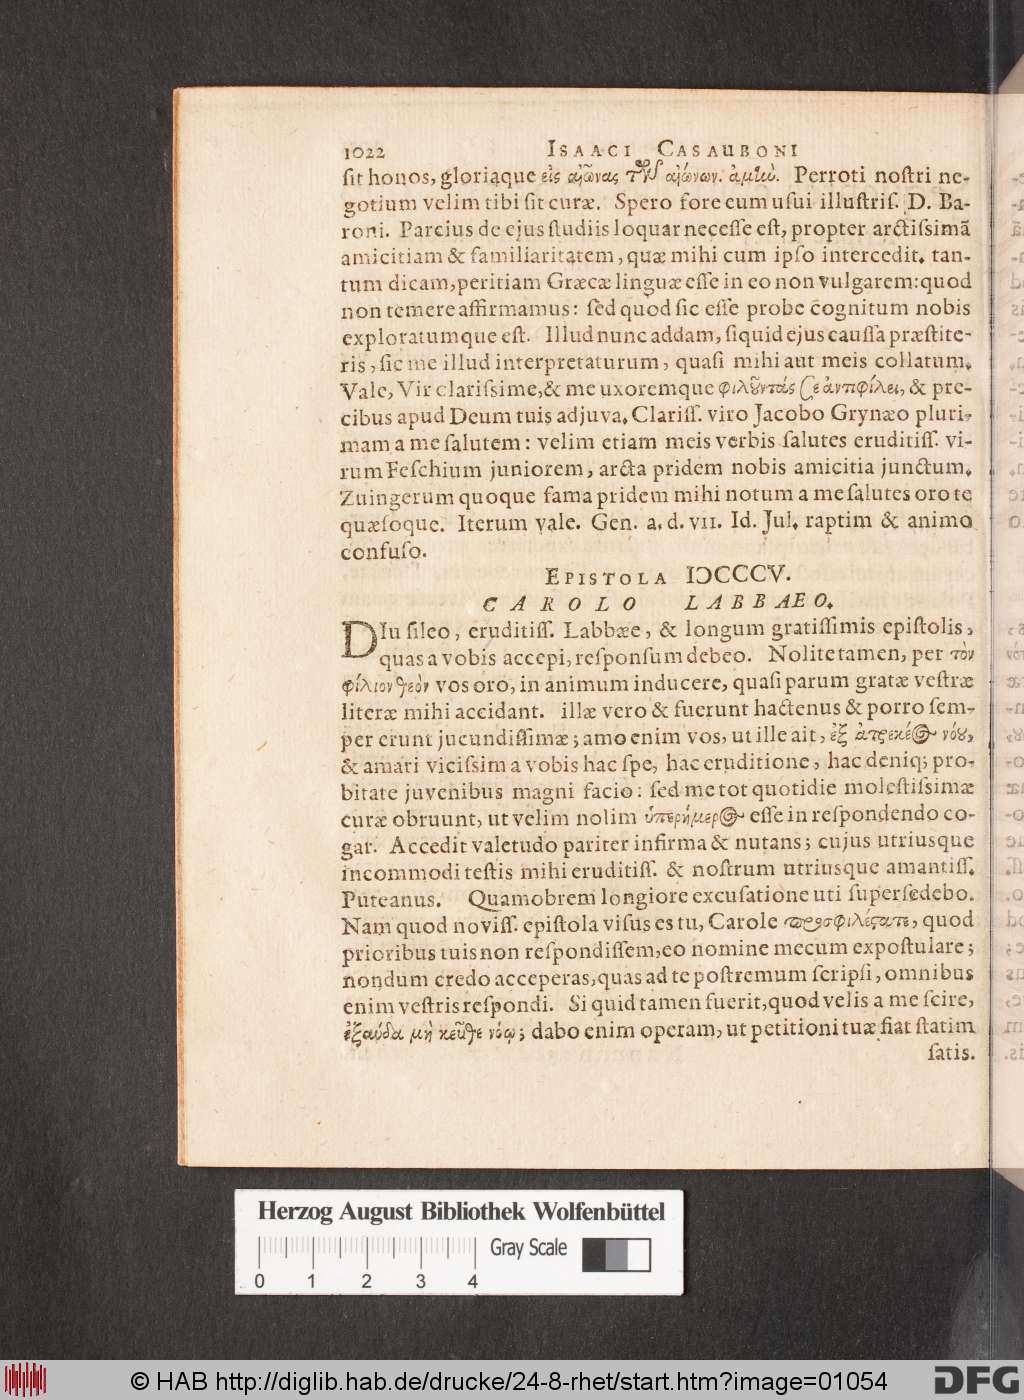 1022 ISAACI CASAUBONI
ſit honos, gloriaque εἰς αἰῶνας τ῀ῶν αἰώνων. ἀμήν. Perroti noſtri ne-
gotium velim tibi ſit curæ. Spero fore eum uſui illuſtriſ. D. Ba-
roni. Parcius de ejus ſtudiis loquar neceſſe eſt, propter arctiſsimã
amicitiam & familiaritatem, quæ mihi cum ipſo intercedit. tan-
tum dicam, peritiam Græcæ linguæ eſſe in eo non vulgarem: quod
non temere affirmamus: ſed quod ſic eſſe probe cognitum nobis
exploratumque eſt. Illud nunc addam, ſiquid ejus cauſſa præſtite-
ris, ſic me illud interpretaturum, quaſi mihi aut meis collatum.
Vale, Vir clariſsime, & me uxoremque φιλοῦντάς σε ἀντιφίλει, & pre-
cibus apud Deum tuis adjuva. Clariſſ. viro Jacobo Grynæo pluri-
mam a me ſalutem: velim etiam meis verbis ſalutes eruditiſſ. vi-
rum Feſchium juniorem, arcta pridem nobis amicitia junctum.
Zuingerum quoque fama pridem mihi notum a me ſalutes oro te
quæſoque. Iterum vale. Gen. a. d. VII. Id. Jul. raptim & animo
confuſo.
EPISTOLA IƆCCCCV.
CAROLO LABBAEO.
DIu ſileo, eruditiſſ. Labbæe, & longum gratiſſimis epiſtolis,
quas a vobis accepi, reſponſum debeo. Nolite tamen, per τὸν
φίλιον θεὸν vos oro, in animum inducere, quaſi parum gratæ veſtræ
literæ mihi accidant. illæ vero & fuerunt hactenus & porro ſem-
per erunt jucundiſſimæ; amo enim vos, ut ille ait, ἐξ ἀτρεκέος νόου,
& amari viciſſim a vobis hac ſpe, hac eruditione, hac deniq; pro-
bitate juvenibus magni facio: ſed me tot quotidie moleſtiſsimæ
curæ obruunt, ut velim nolim ὑπερήμερος eſſe in reſpondendo co-
gar. Accedit valetudo pariter infirma & nutans; cujus utriusque
incommodi teſtis mihi eruditiſſ. & noſtrum utriusque amantiſſ.
Puteanus. Quamobrem longiore excuſatione uti ſuperſedebo.
Nam quod noviſſ. epiſtola viſus es tu, Carole προσφιλέςατε, quod
prioribus tuis non reſpondiſſem, eo nomine mecum expoſtulare;
nondum credo acceperas, quas ad te poſtremum ſcripſi, omnibus
enim veſtris reſpondi. Si quid tamen fuerit, quod velis a me ſcire,
ἐξαύδα μὴ κεῦθε νόῳ; dabo enim operam, ut petitioni tuæ fiat ſtatim
ſatis.
Herzog August Bibliothek Wolfenbüttel
Gray Scale
0 1 2 3 4
© HAB http://diglib.hab.de/drucke/24-8-rhet/start.htm?image=01054
DFG